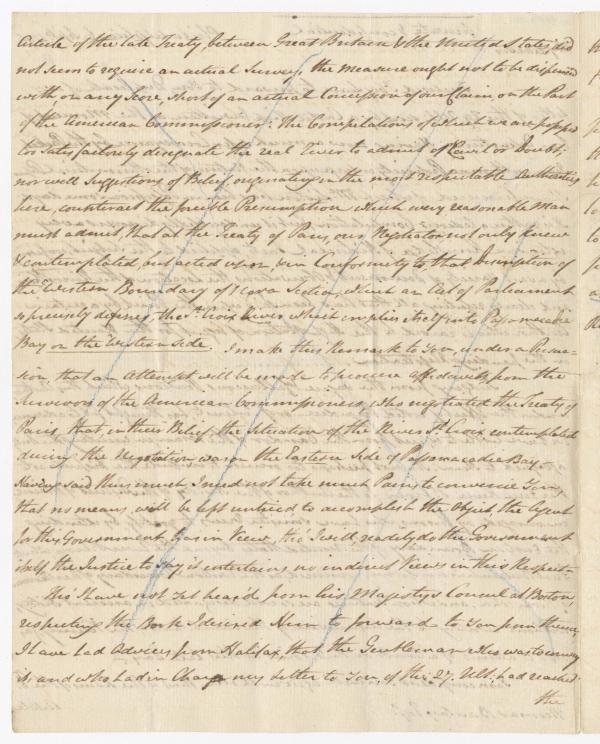 Article of the late Treaty between Great Britain & the United States, did
not seem to require an actual Survey, the measure ought not to be dispensed
with, on any Score, Short of an actual Concession of our Claim, on the Part
of the American Commissioner: The Compilations of which we are possessed
too satisfactorily designate the real River to admit of Cavil or Doubt;
nor will Suggestions of Belief, originating in the most respectable Authorities
here, counteract the forcible Presumption which every reasonable Man
must admit, that at the Treaty of Paris, our Negotiator not only knew
& contemplated, but acted upon, & in Conformity to that Description of
the Western Boundary of Nova Scotia, which an Act of Parliament
so precisely defines, the St. Croix River which empties itself into Passamacadie
Bay on the Western side. I make this Remark to You, under a Persua-
sion, that an Attempt will be made to procure affidavits, from the
Survivors of the American Commissioners, who negotiated the Treaty of
Paris, that, in their Belief, the Situation of the River St. Croix, contemplated
during the Negotiation, was on the Eastern Side of Passamacadie Bay.
Having said thus much, I need not take much Pains to convince You,
that no means will be left untried to accomplish the Object the Agent
for this Government has in View, tho' I will readily do the Government
itself the Justice to say it entertains no indirect Views in this Respect.
Tho' I have not yet heard from his Majestys Consul at Boston,
respecting the Book I desired Him to forward to You from thence,
I have had Advices from Halifax, that the Gentleman who was to convey
it, and who had in Charge my Letter to You, of the 27. Ult: had reached
the